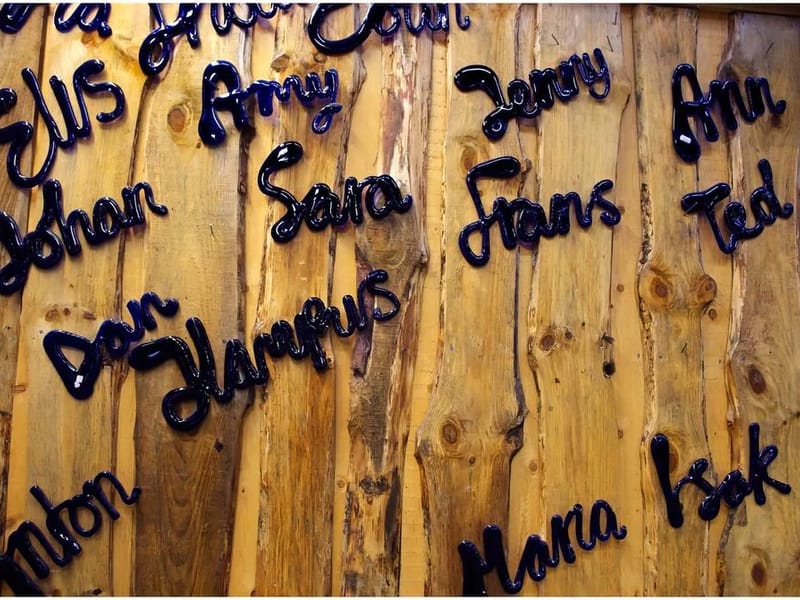 Ellis Amy Jenny Ann
Johan Sara Frans Ted
Dan Hampus
Anton Maria Isak